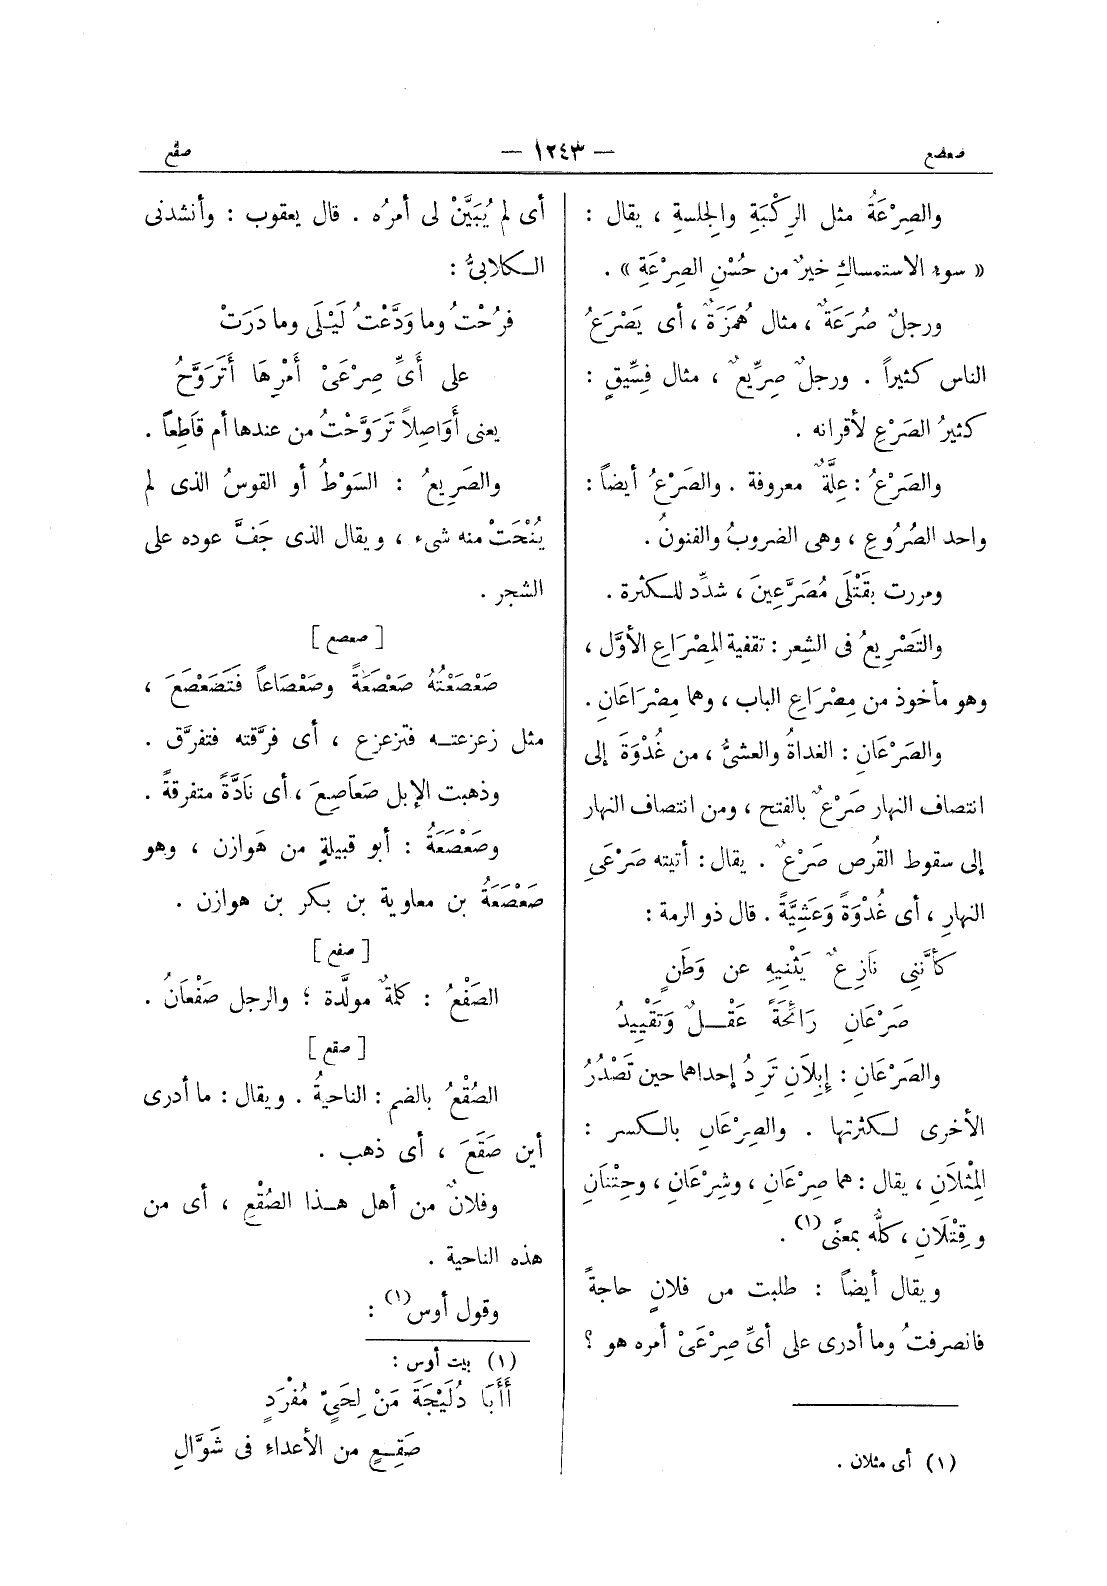 صعصع — ١٢٤٣ — صقع
والصِرْعَةُ مثل الرِكْبَةِ والجِلسةِ ، يقال :
« سوء الاستمساكِ خيرٌ من حُسْنِ الصِرْعَةِ » .
ورجلٌ صُرَعَةٌ ، مثال هُمَزَةٌ ، أى يَصْرَعُ
الناس كثيراً . ورجلٌ صِرِّيعٌ ، مثال فِسِّيقٍ :
كثيرُ الصَرْعِ لأقرانه .
والصَرْعُ : عِلَّةٌ معروفة . والصَرْعُ أيضاً :
واحد الصُرُوعِ ، وهى الضروبُ والفنونُ .
ومررت بقَتْلَى مُصَرَّعِينَ ، شدِّد للكثرة .
والتَصْرِيعُ فى الشِعر : تقفية المِصْرَاعِ الأوَّل ،
وهو مأخوذ من مِصْرَاعِ الباب ، وهما مِصْرَاعَانِ .
والصَرْعَانِ : الغداةُ والعشىُّ ، من غُدْوَةَ إلى
انتصاف النهار صَرْعٌ بالفتح ، ومن انتصاف النهار
إلى سقوط القُرص صَرْعٌ . يقال : أتيته صَرْعَىِ
النهارِ ، أى غُدْوَةً وَعَشِيَّةً . قال ذو الرمة :
كأنَّنِى نَازِعٌ يَثْنِيهِ عن وَطَنٍ
صَرْعَانِ رَائِحَةً عَقْلٌ وَتَقْيِيدُ
والصَرْعَانِ : إبِلاَنِ تَرِدُ إحداهما حين تَصْدُرُ
الأخرى لكثرتها . والصِرْعَانِ بالكسر :
المِثْلاَنِ ، يقال : هما صِرْعَانِ ، وشِرْعَانِ ، وحِتْنَانِ
وقِتْلَانِ ، كلُّه بمعنًى (١) .
ويقال أيضاً : طلبت من فلانٍ حاجةً
فانصرفتُ وما أدرى على أىِّ صِرْعَىْ أمره هو ؟
(١) أى مثلان .
أى لم يُبَيَّنْ لى أمرُه . قال يعقوب : وأنشدنى
الكلابىُّ :
فرُحْتُ وما وَدَّعْتُ لَيْلَى وما دَرَتْ
على أَىِّ صِرْعَىْ أَمْرِهَا أَتَرَوَّحُ
يعنى أَوَاصِلاً تَرَوَّحْتُ من عندها أم قاطِعاً .
والصَرِيعُ : السَوْطُ أو القوسُ الذى لم
يُنْحَتْ منه شىء ، ويقال الذى جَفَّ عوده على
الشجر .
[ صعصع ]
صَعْصَعْتُهُ صَعْصَعَةً وصَعْصَاعاً فَتَصَعْصَعَ ،
مثل زعزعته فتزعزع ، أى فرَّقته فتفرَّق .
وذهبت الإبل صَعَاصِعَ ، أى نَادَّةً متفرقةً .
وصَعْصَعَةُ : أبو قبيلةٍ من هَوازن ، وهو
صَعْصَعَةُ بن معاوية بن بكر بن هوازن .
[ صفع ]
الصَفْعُ : كلمةٌ مولَّدة ؛ والرجل صَفْعَانُ .
[ صقع ]
الصُقْعُ بالضم : الناحيةُ . ويقال : ما أدرى
أين صَقَعَ ، أى ذهب .
وفلانٌ من أهل هذا الصُقْعِ ، أى من
هذه الناحية .
وقول أوس (١) :
(١) بيت أوس :
أَأَبَا دُلَيْجَةَ مَنْ لِحَىٍّ مُفْرَدٍ
صَقِعٍ من الأعداءِ فى شَوَّالِ